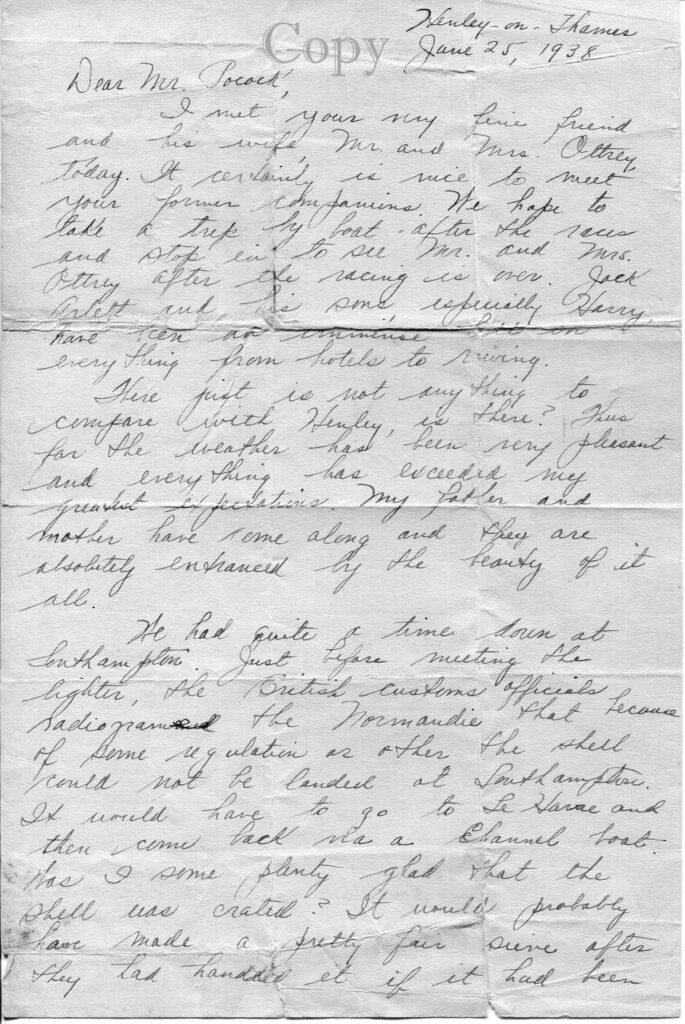 Henley-on-Thames
Copy
June 25, 1938
Dear Mr. Pocock,
I met your very fine friend
and his wife, Mr. and Mrs. Ottrey,
today. It certainly is nice to meet
your former companions. We hope to
take a trip by boat after the races
and stop in to see Mr. and Mrs.
Ottrey after the racing is over. Jack
and his sons, especially Harry,
have been an immense in
everything from hotels to rowing.
There just is not anything to
compare with Henley, is there? Thus
far the weather has been very pleasant
and everything has exceeded my
greatest expectations. My father and
mother have come along and they are
absolutely entranced by the beauty of it
all.
We had quite a time down at
Southampton. Just before meeting the
lighter, the British customs officials
radiogramed the Normandie that because
of some regulation or other the shell
could not be landed at Southampton.
It would have to go to Le Havre and
then come back via a Channel boat.
Was I some plenty glad that the
shell was crated? It would probably
have made a pretty fair sieve after
they had handled it if it had been